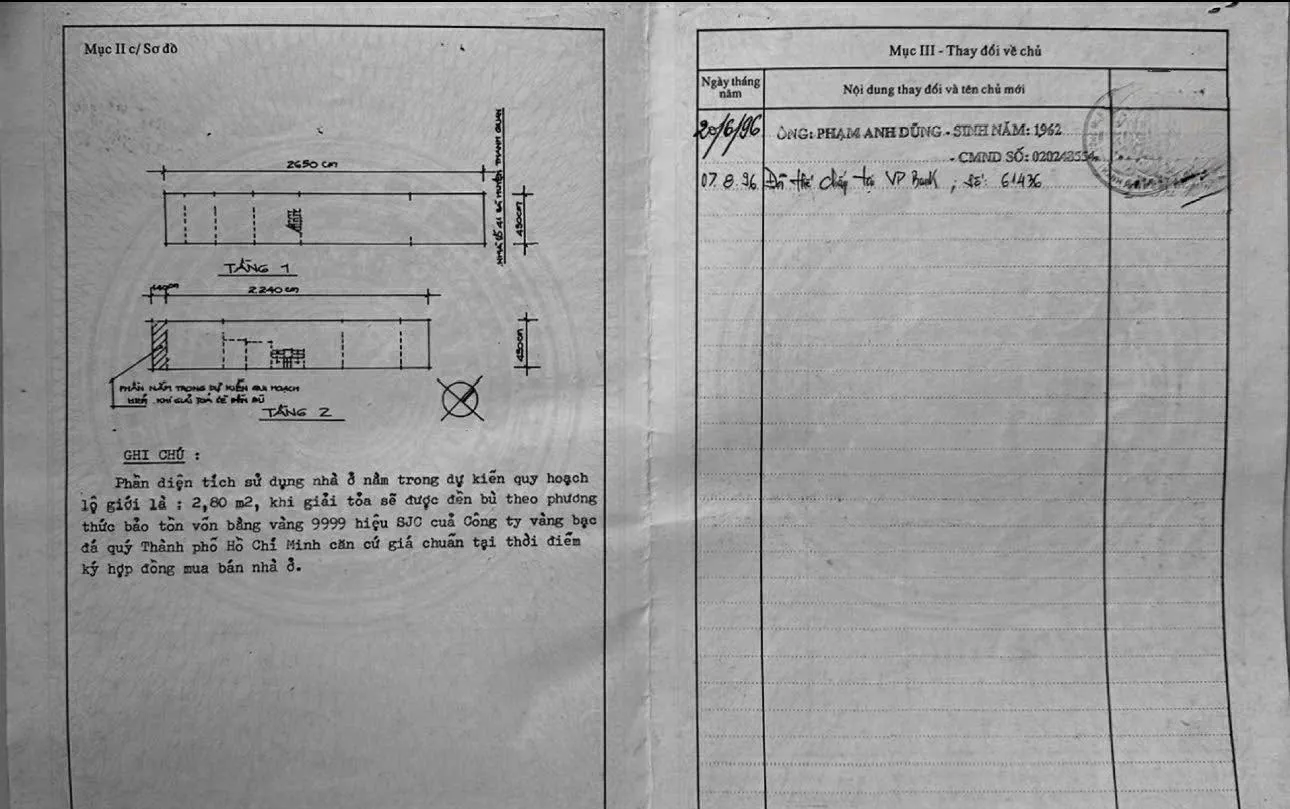 Mục II c/ Sơ đồ
2650 cm
NHÀ SỐ 41 BÀ HUYỆN THANH QUAN
450cm
TẦNG 1
2240 cm
450cm
PHẦN NẰM TRONG DỰ KIẾN QUI HOẠCH
KHI GIẢI TOẢ SẼ ĐỀN BÙ
TẦNG 2
GHI CHÚ :
Phần diện tích sử dụng nhà ở nằm trong dự kiến quy hoạch
lộ giới là : 2,80 m2, khi giải tỏa sẽ được đền bù theo phương
thức bảo tồn vốn bằng vàng 9999 hiệu SJC cuả Công ty vàng bạc
đá quý Thành phố Hồ Chí Minh căn cứ giá chuẩn tại thời điểm
ký hợp đồng mua bán nhà ở.
Mục III - Thay đổi về chủ
Ngày tháng
năm
Nội dung thay đổi và tên chủ mới
20/6/96 ÔNG: PHẠM ANH DŨNG - SINH NĂM: 1962
- CMND SỐ: 020243554
07.8.96 Đã thế chấp tại VP Bank, số: 61436